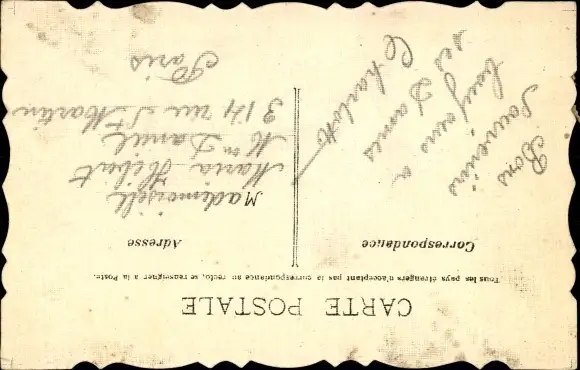 CARTE POSTALE
Tous les pays étrangers n'acceptant pas la correspondance au recto, se renseigner à la Poste.
Correspondance
Bons
Souvenirs
à
ses
Charlotte
Adresse
Mademoiselle
Maria Hébert
Mon Daniel
314 rue St Martin
Paris